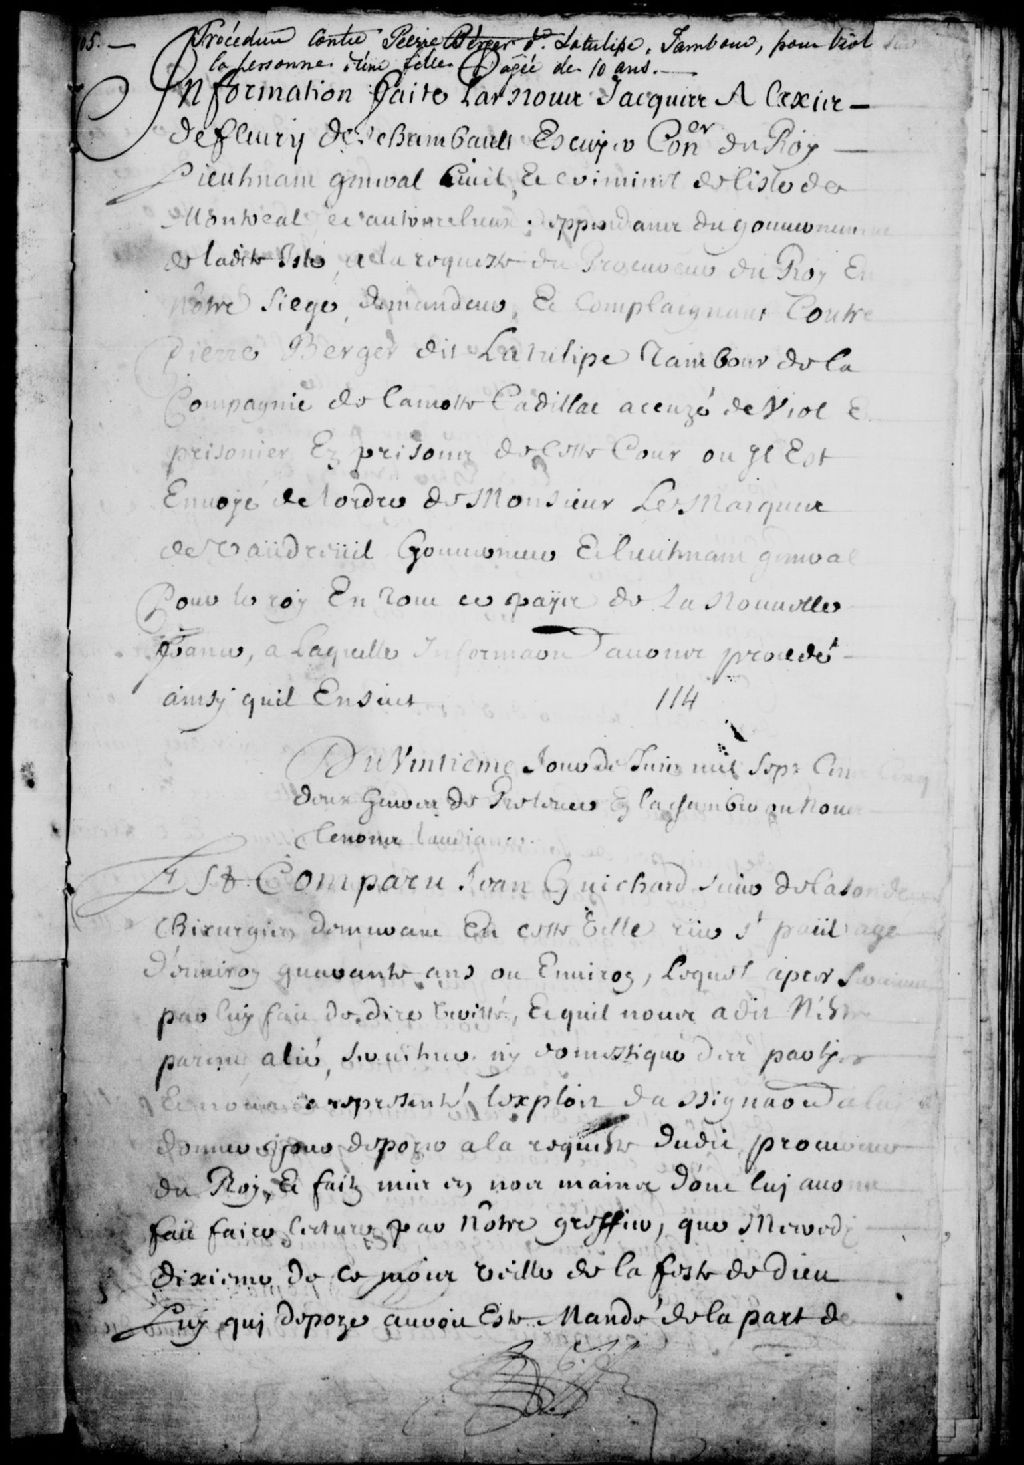 05. — Procédure contre Pierre Berger d. Latulipe, Tambour, pour viol sur
la personne d'une fille agée de 10 ans. —
Information faite Par Nous Jacques Alexis —
de fleury deschambault Escuyer Con.er du Roy —
Lieutenant general Civil, Et criminel de l'isle de
Montreal, et autres lieux deppendance du gouvernement
de ladite Isle, a la requeste du Procureur du Roy En
nôtre Siege, demandeur, Et Complaignant Contre
Pierre Berger dit Latulipe Tambour de la
Compagnie de Lamotte Cadillac accuzé de Viol E
prisonier Ez prisons de Cette Cour ou Jl Est
Envoyé de l'ordre de Monsieur Le Marquis
de Vaüdreüil Gouverneur Et lieutenant general
Pour le roy En tout ce païs de La Nouvelle
france, a Laquelle Informaon avons procedé —
ainsy quil Ensuit 114
Du Vintiéme Jour de Juin mil Sept Cent Cinq
deux heures de Relevée En la chambre ou Nous
tenons l'audiance
Est Comparu Jean Guichard Sieur de
Chirurgien demeurant En cette Ville rüe St paül agé
d'environ quarante ans ou Environ, Lequel apres Serment
par luy fait de dire verité, Et quil nous a dit N'estre
parent, alié, Serviteur ny domestique des parties
Et nous a representé l'exploit d'assignaon a luy
donné pour deposer a la requeste dudit procureur
du Roy, Et faitz mis es nos mains dont luy avons
fait faire lecture par Nôtre greffier, que Mercredy
dixieme de ce mois veille de la feste de Dieu
Luy qui depoze auroit Este Mandé de la part de